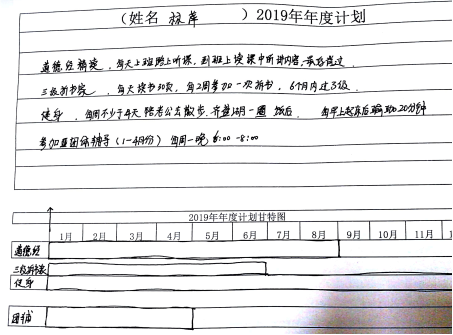 (姓名 林萍 )2019年年度计划
道德经精读，每天上班路上听课，到班上读课中所讲内容，
三级拆书家，每天读书30页，每2周参加一次拆书，6个月内过3级
健身，每周不少于4天陪老公去散步， 饭后 每早上起床后 20分钟
参加 团体辅导（1-4月份）每周一晚 6:00-8:00
2019年年度计划甘特图
1月 2月 3月 4月 5月 6月 7月 8月 9月 10月 11月
道德经
三级拆书家
健身
团辅